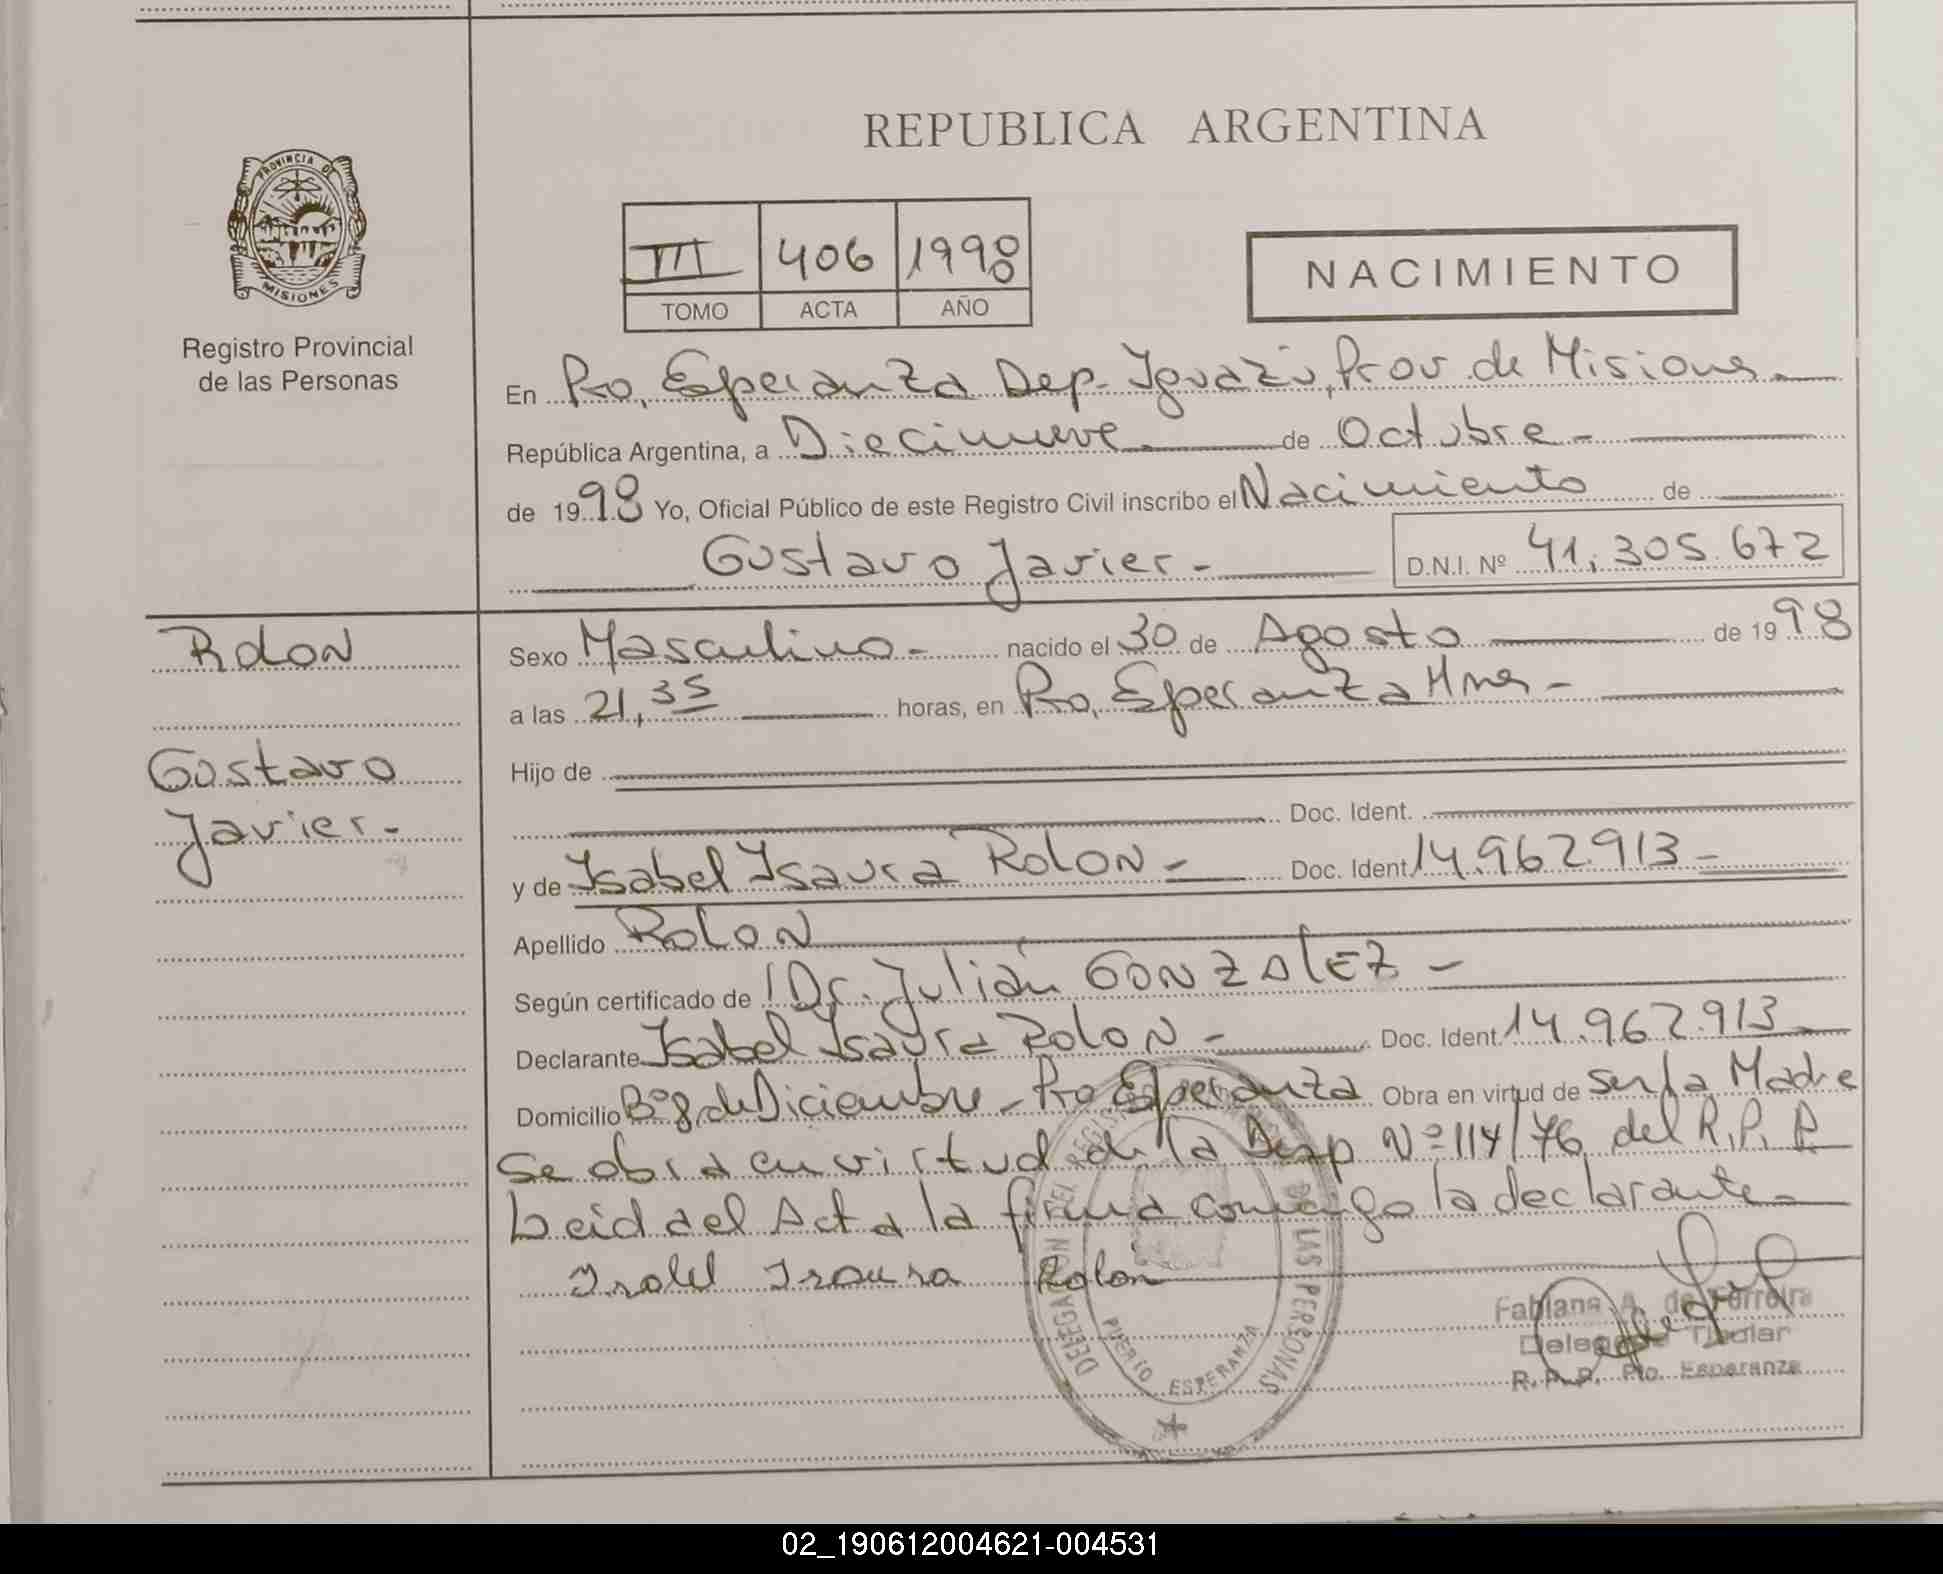 REPUBLICA ARGENTINA
PROVINCIA DE
MISIONES
Registro Provincial
de las Personas
III 406 1998
TOMO ACTA AÑO
NACIMIENTO
En Pto. Esperanza Dep. Iguazú, Prov de Misiones.
República Argentina, a Diecinueve. de Octubre -
de 1998 Yo, Oficial Público de este Registro Civil inscribo el Nacimiento de
Gustavo Javier - D.N.I. Nº 41.305.672
Rolon
Gustavo
Javier -
Sexo Masculino - nacido el 30 de Agosto de 1998
a las 21,35 horas, en Pto. Esperanza Mnes -
Hijo de
Doc. Ident.
y de Isabel Isaura Rolon - Doc. Ident 14.962.913 -
Apellido Rolon
Según certificado de Dr. Julián GONZALEZ -
Declarante Isabel Isaura Rolon - Doc. Ident 14.962.913
Domicilio Bº 8 de Diciembre - Pto Esperanza Obra en virtud de ser la Madre
Se obra en virtud de la Disp Nº 114/76 del R.P.P.
Leida el Acta la firma conmigo la declarante -
Isabel Isaura Rolon
DELEGACION DEL REGISTRO DE LAS PERSONAS
PUERTO ESPERANZA
Fabiana A. de Ferreira
Delegada Titular
R.P.P. Pto. Esperanza
02_190612004621-004531